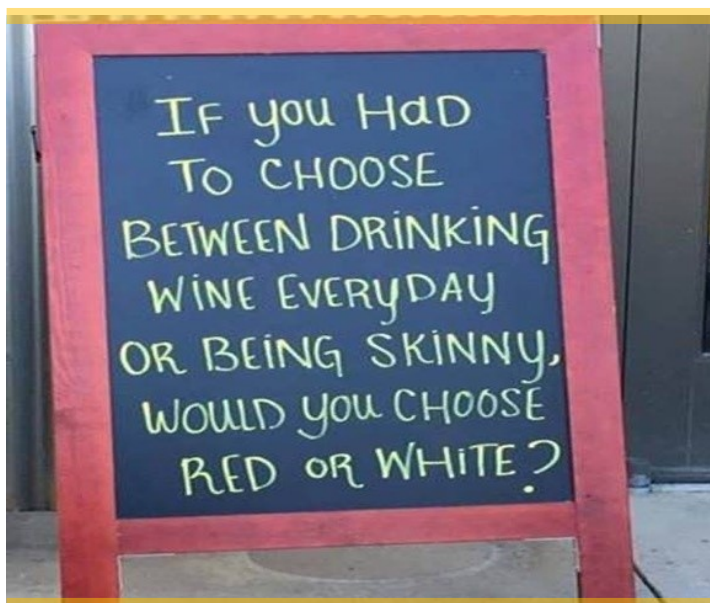 IF you HaD
TO CHOOSE
BETWEEN DRiNKiNG
WiNE EVERyDAY
OR BEiNG SKiNNy,
WOULD you CHOOSE
RED OR WHiTE?